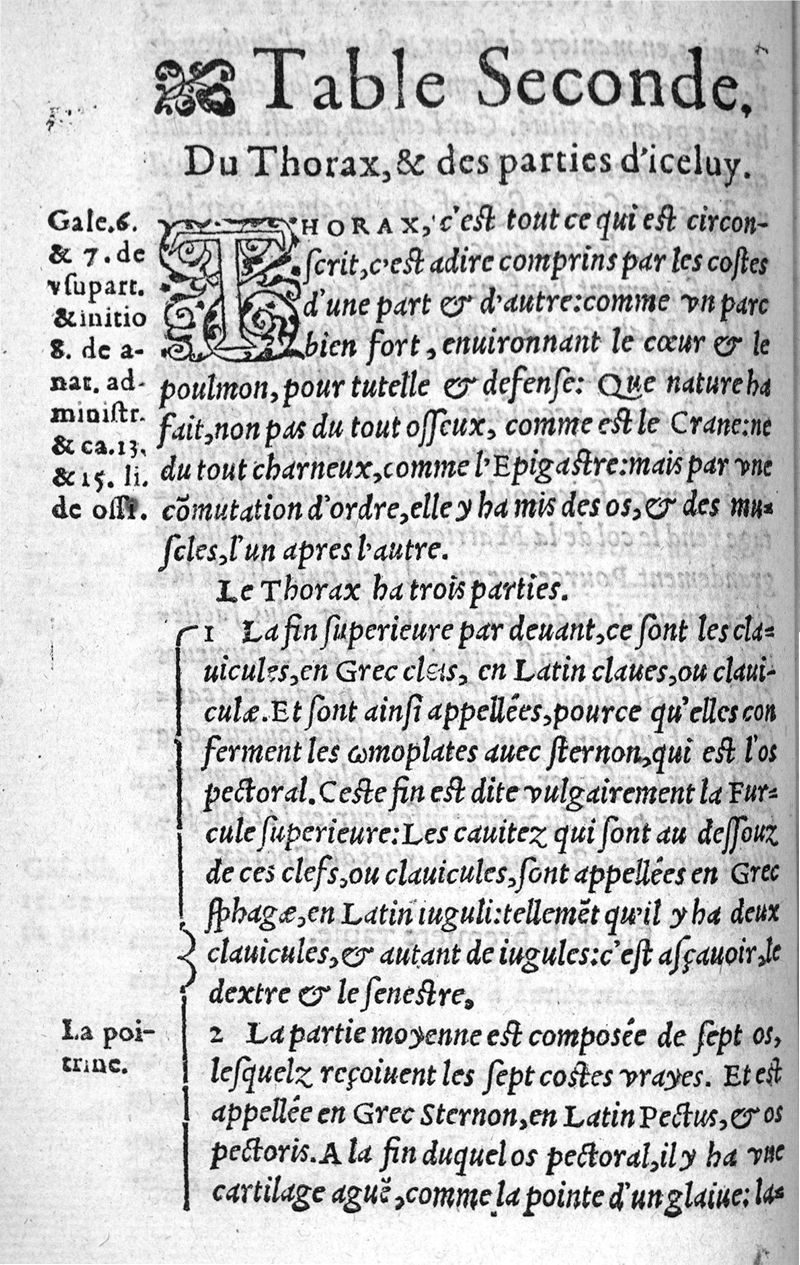 Table Seconde,
Du Thorax, & des parties d'iceluy.
Gale.6.
& 7. de
vsu part.
& initio
8. de a-
nat. ad-
ministr.
& ca.13.
& 15. li.
de ossi.
THORAX, c'est tout ce qui est circon-
scrit, c'est adire comprins par les costes
d'une part & d'autre: comme vn parc
bien fort, enuironnant le cœur & le
poulmon, pour tutelle & defense: Que nature ha
fait, non pas du tout osseux, comme est le Crane: ne
du tout charneux, comme l'Epigastre: mais par vne
cõmutation d'ordre, elle y ha mis des os, & des mu-
scles, l'un apres l'autre.
Le Thorax ha trois parties.
1 La fin superieure par deuant, ce sont les cla-
uicules, en Grec cleis, en Latin claues, ou claui-
culæ. Et sont ainsi appellées, pource qu'elles con
ferment les ωmoplates auec sternon, qui est l'os
pectoral. Ceste fin est dite vulgairement la Fur-
cule superieure: Les cauitez qui sont au dessouz
de ces clefs, ou clauicules, sont appellées en Grec
sphagæ, en Latin iuguli: tellemẽt qu'il y ha deux
clauicules, & autant de iugules: c'est asçauoir, le
dextre & le senestre.
La poi-
trine.
2 La partie moyenne est composée de sept os,
lesquelz reçoiuent les sept costes vrayes. Et est
appellée en Grec Sternon, en Latin Pectus, & os
pectoris. A la fin duquel os pectoral, il y ha vne
cartilage aguë, comme la pointe d'un glaiue: la-